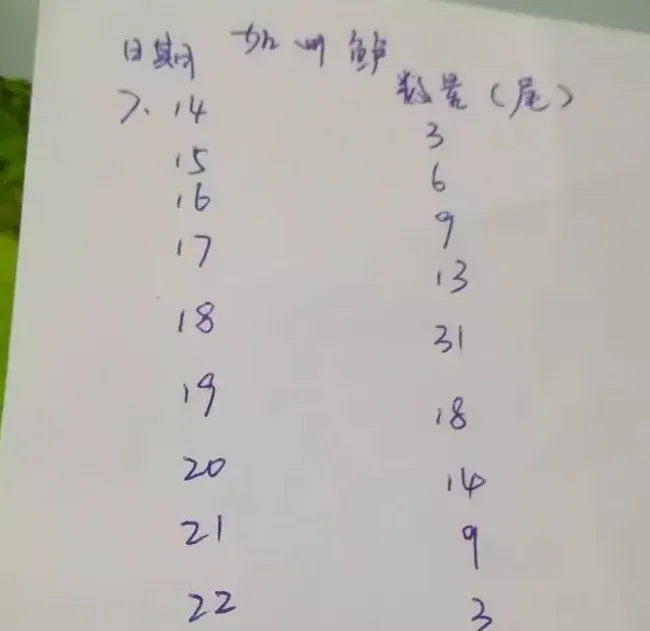 日期 加州鲈
数量(尾)
7.14 3
15 6
16 9
17 13
18 31
19 18
20 14
21 9
22 3